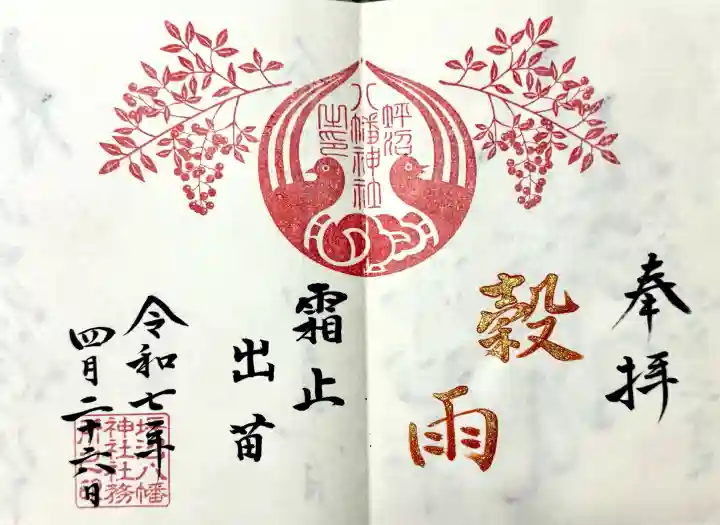 奉拝
穀雨
蛭沼
八幡神社
之印
霜止
出苗
令和七年
四月二十六日
神社社務